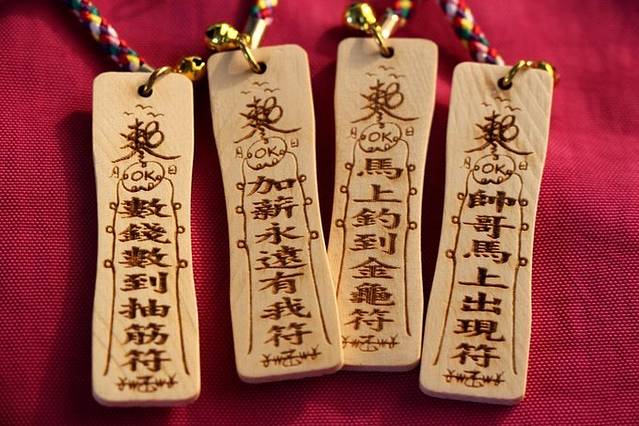 OK
數錢數到抽筋符
OK
加薪永遠有我符
OK
馬上釣到金龜符
OK
帥哥馬上出現符